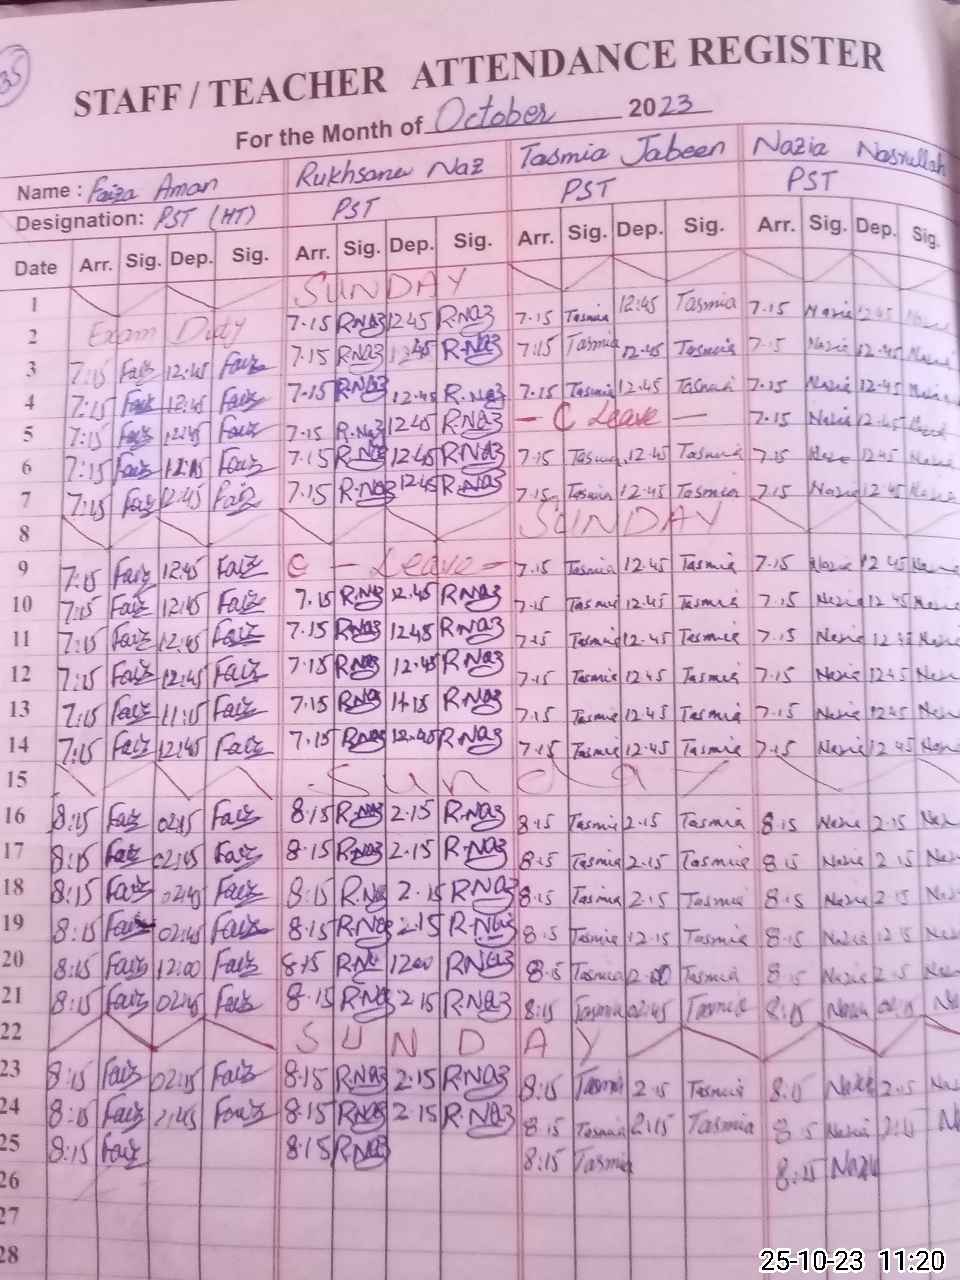 35
STAFF / TEACHER ATTENDANCE REGISTER
For the Month of October 2023
Name : Faiza Aman Rukhsana Naz Tasmia Jabeen Nazia Nasrullah
Designation: PST (HT) PST PST PST
Date Arr. Sig. Dep. Sig. Arr. Sig. Dep. Sig. Arr. Sig. Dep. Sig. Arr. Sig. Dep. Sig.
1 SUNDAY
2 Exam Duty 7.15 R.Naz 12 45 R.Naz 7.15 Tasmia 12:45 Tasmia 7.15 Nazia 12 45
3 7:15 Faiz 12:45 Faiz 7.15 R.Naz 12 45 R.Naz 7.15 Tasmia 12.45 Tasmia 7.15 Nazia 12.45 Nazia
4 7:15 Faiz 12:45 Faiz 7.15 R.Naz 12.45 R.Naz 7.15 Tasmia 12.45 Tasmia 7.15 Nazia 12.45 Nazia
5 7:15 Faiz 12:45 Faiz 7.15 R.Naz 12 45 R.Naz - C Leave - 7.15 Nazia 12.45
6 7:15 Faiz Faiz 7.15 R.Naz 12.45 R.Naz 7.15 Tasmia 12.45 Tasmia 7.15 12 45 Nazia
7 7:15 Faiz 12:45 Faiz 7.15 R.Naz 12.45 R.Naz 7.15 Tasmia 12.45 Tasmia 7.15 Nazia 12 45 Nazia
8 SUNDAY
9 7:15 Faiz 12:45 Faiz C - Leave - 7.15 Tasmia 12.45 Tasmia 7.15 Nazia 12 45
10 7:15 Faiz 12:45 Faiz 7.15 R.Naz 12.45 R.Naz 7.15 Tasmia 12.45 Tasmia 7.15 Nazia 12 45
11 7:15 Faiz 12:45 Faiz 7.15 R.Naz 12 45 R.Naz 7.15 Tasmia 12.45 Tasmia 7.15 Nazia
12 7:15 Faiz 12:45 Faiz 7.15 R.Naz 12.45 R.Naz 7.15 Tasmia 12 45 Tasmia 7.15 Nazia 12 45
13 7:15 Faiz 11:15 Faiz 7.15 R.Naz R.Naz 7.15 Tasmia 12.45 Tasmia 7.15 Nazia 12 45
14 7:15 Faiz 12:45 Faiz 7.15 R.Naz 12.45 R.Naz 7.15 Tasmia 12.45 Tasmia 7.15 Nazia 12 45
15 Sunday
16 8:15 Faiz Faiz 8.15 R.Naz 2.15 R.Naz 8.15 Tasmia 2.15 Tasmia 8.15 Nazia 2.15
17 8:15 Faiz 02:45 Faiz 8.15 R.Naz 2.15 R.Naz 8.15 Tasmia 2.15 Tasmia 8.15 Nazia 2 15
18 8:15 Faiz 02:45 Faiz 8:15 R.Naz 2.15 R.Naz 8.15 Tasmia 2.15 Tasmia 8.15 Nazia 2 15
19 8:15 Faiz 02:45 Faiz 8.15 R.Naz 2.15 R.Naz 8.15 Tasmia 12.15 Tasmia 8.15 Nazia 12 15
20 8:15 Faiz 12:00 Faiz 8.15 R.Naz 1200 R.Naz 8.15 Tasmia Tasmia 8.15 Nazia
21 8:15 Faiz 02:45 Faiz 8.15 R.Naz 2 15 R.Naz 8:15 Tasmia 02:45 Tasmia 8:15 Nazia
22 SUNDAY
23 8:15 Faiz 02:15 Faiz 8.15 R.Naz 2.15 R.Naz 8:15 Tasmia 2.15 Tasmia 8:15 Nazia 2.15
24 8:15 Faiz 2:45 Faiz 8.15 R.Naz 2.15 R.Naz 8:15 Tasmia 2:15 Tasmia 8 15 Nazia 2:15
25 8:15 Faiz 8.15 R.Naz 8:15 Tasmia 8:15 Nazia
26
27
28
25-10-23 11:20